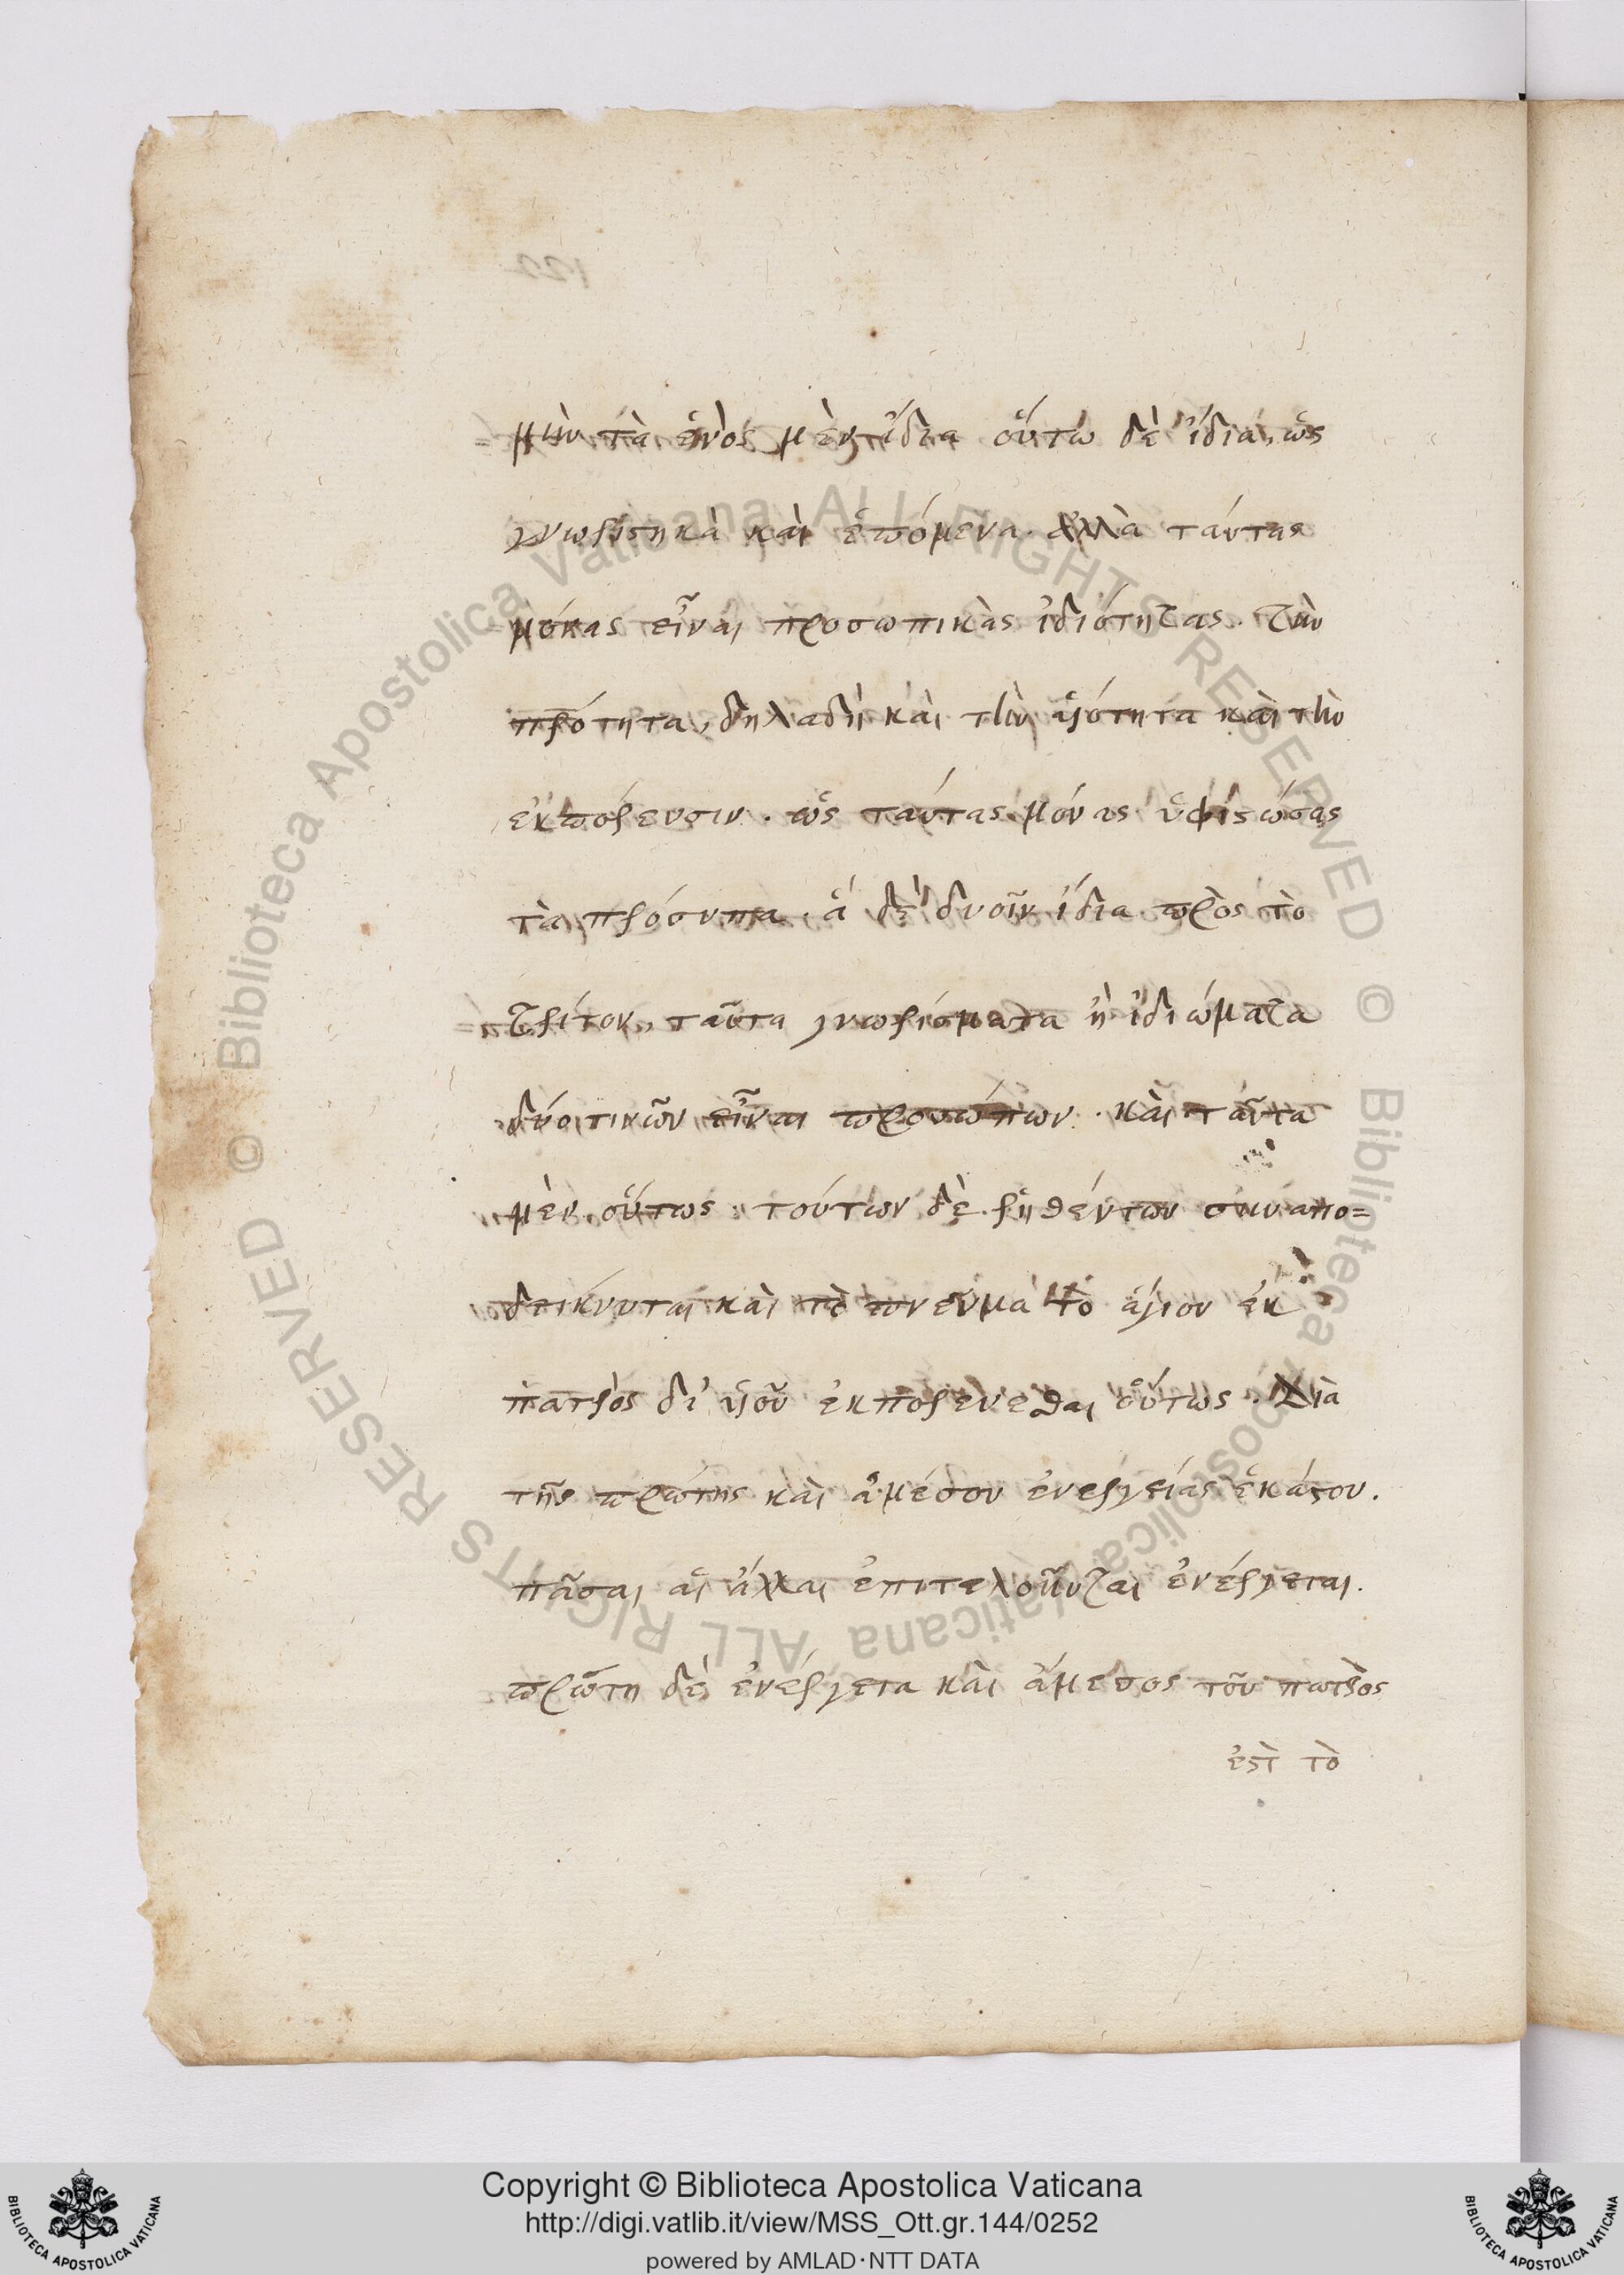 μὴν τὰ ἑνὸς μὲν ἴδια οὕτω δὲ ἴδια, ὡς
γνωριστικὰ καὶ ἑπόμενα. ἀλλὰ ταύτας
μόνας εἶναι προσωπικὰς ἰδιότητας. τὴν
πρότητα, δηλαδὴ καὶ τὴν υἱότητα καὶ τὴν
ἐκπόρευσιν. ὡς ταύτας μόνας ὑφιστώσας
τὰ πρόσωπα. ἃ δὲ δυοῖν ἴδια πρὸς τὸ
τρίτον, ταῦτα γνωρίσματα ἢ ἰδιώματα
δύο τινῶν εἶναι προσώπων. καὶ ταῦτα
μὲν οὕτως. τούτων δὲ ῥηθέντων συναπο=
δείκνυται καὶ τὸ πνεύμα τὸ ἅγιον ἐκ
πατρὸς δι' υἱοῦ ἐκπορεύεσθαι οὕτως. Διὰ
τῆς πρώτης καὶ ἀμέσου ἐνεργείας ἑκάστου.
πᾶσαι αἱ ἄλλαι ἐπιτελοῦνται ἐνέργειαι.
πρώτη δὲ ἐνέργεια καὶ ἄμεσος τοῦ πατρὸς
ἐστὶ τὸ
Copyright © Biblioteca Apostolica Vaticana
http://digi.vatlib.it/view/MSS_Ott.gr.144/0252
powered by AMLAD·NTT DATA
© Biblioteca Apostolica Vaticana ALL RIGHTS RESERVED
© Biblioteca Apostolica Vaticana ALL RIGHTS RESERVED
BIBLIOTECA APOSTOLICA VATICANA
BIBLIOTECA APOSTOLICA VATICANA